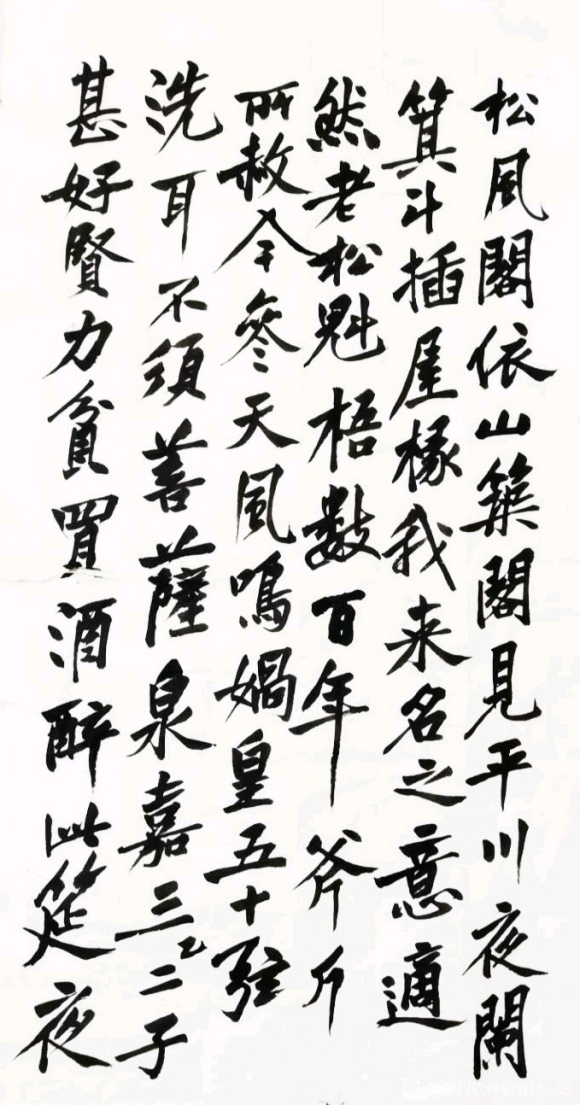 松風閣依山築閣見平川夜闌
箕斗插屋椽我來名之意適
然老松魁梧數百年斧斤
所赦今參天風鳴媧皇五十弦
洗耳不須菩薩泉嘉三二子
甚好賢力貧買酒醉此筵夜